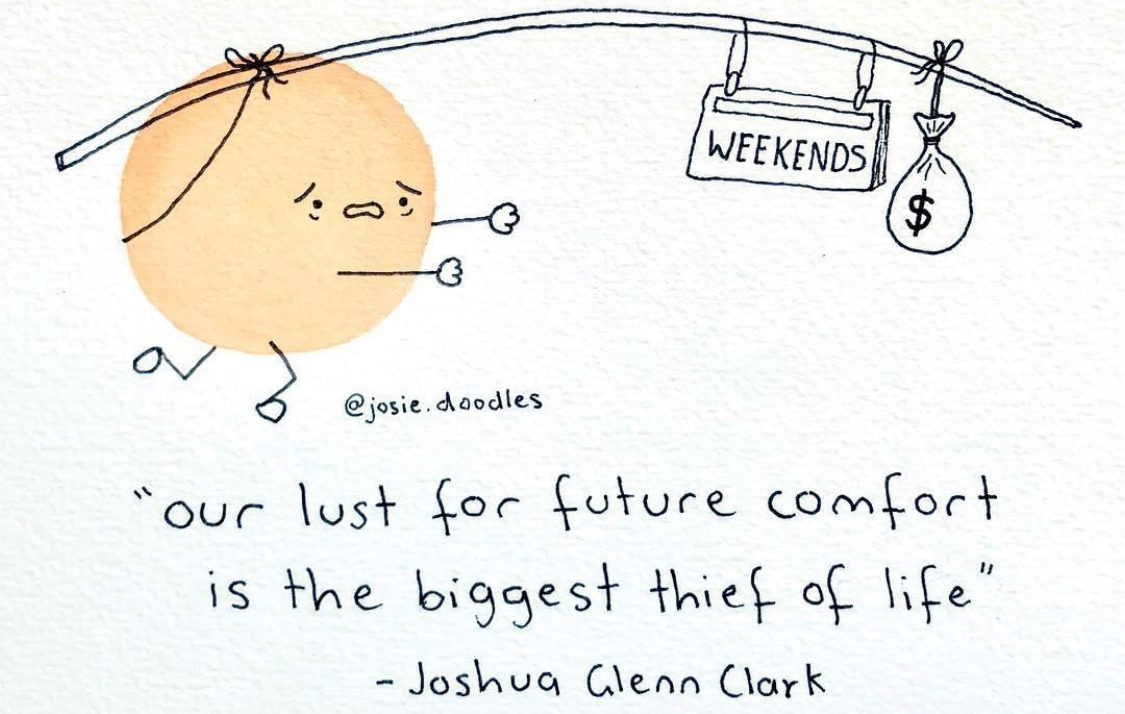 WEEKENDS
$
@josie.doodles
"our lust for future comfort
is the biggest thief of life"
- Joshua Glenn Clark